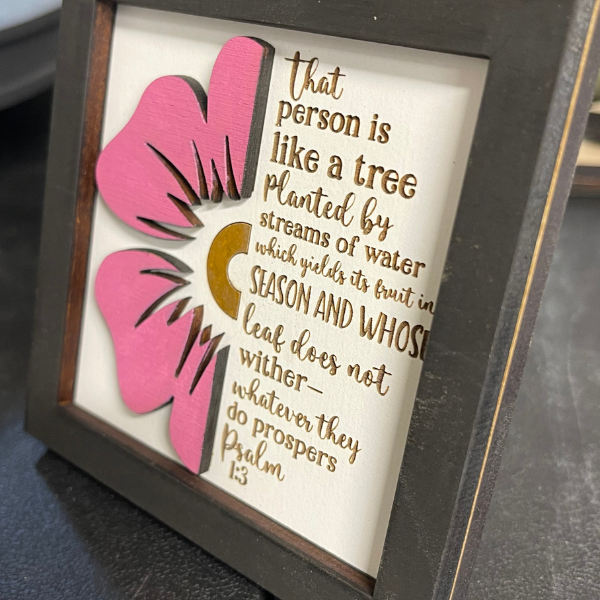 That
person is
like a tree
planted by
streams of water
which yields its fruit in
SEASON AND WHOSE
leaf does not
wither—
whatever they
do prospers
Psalm
1:3